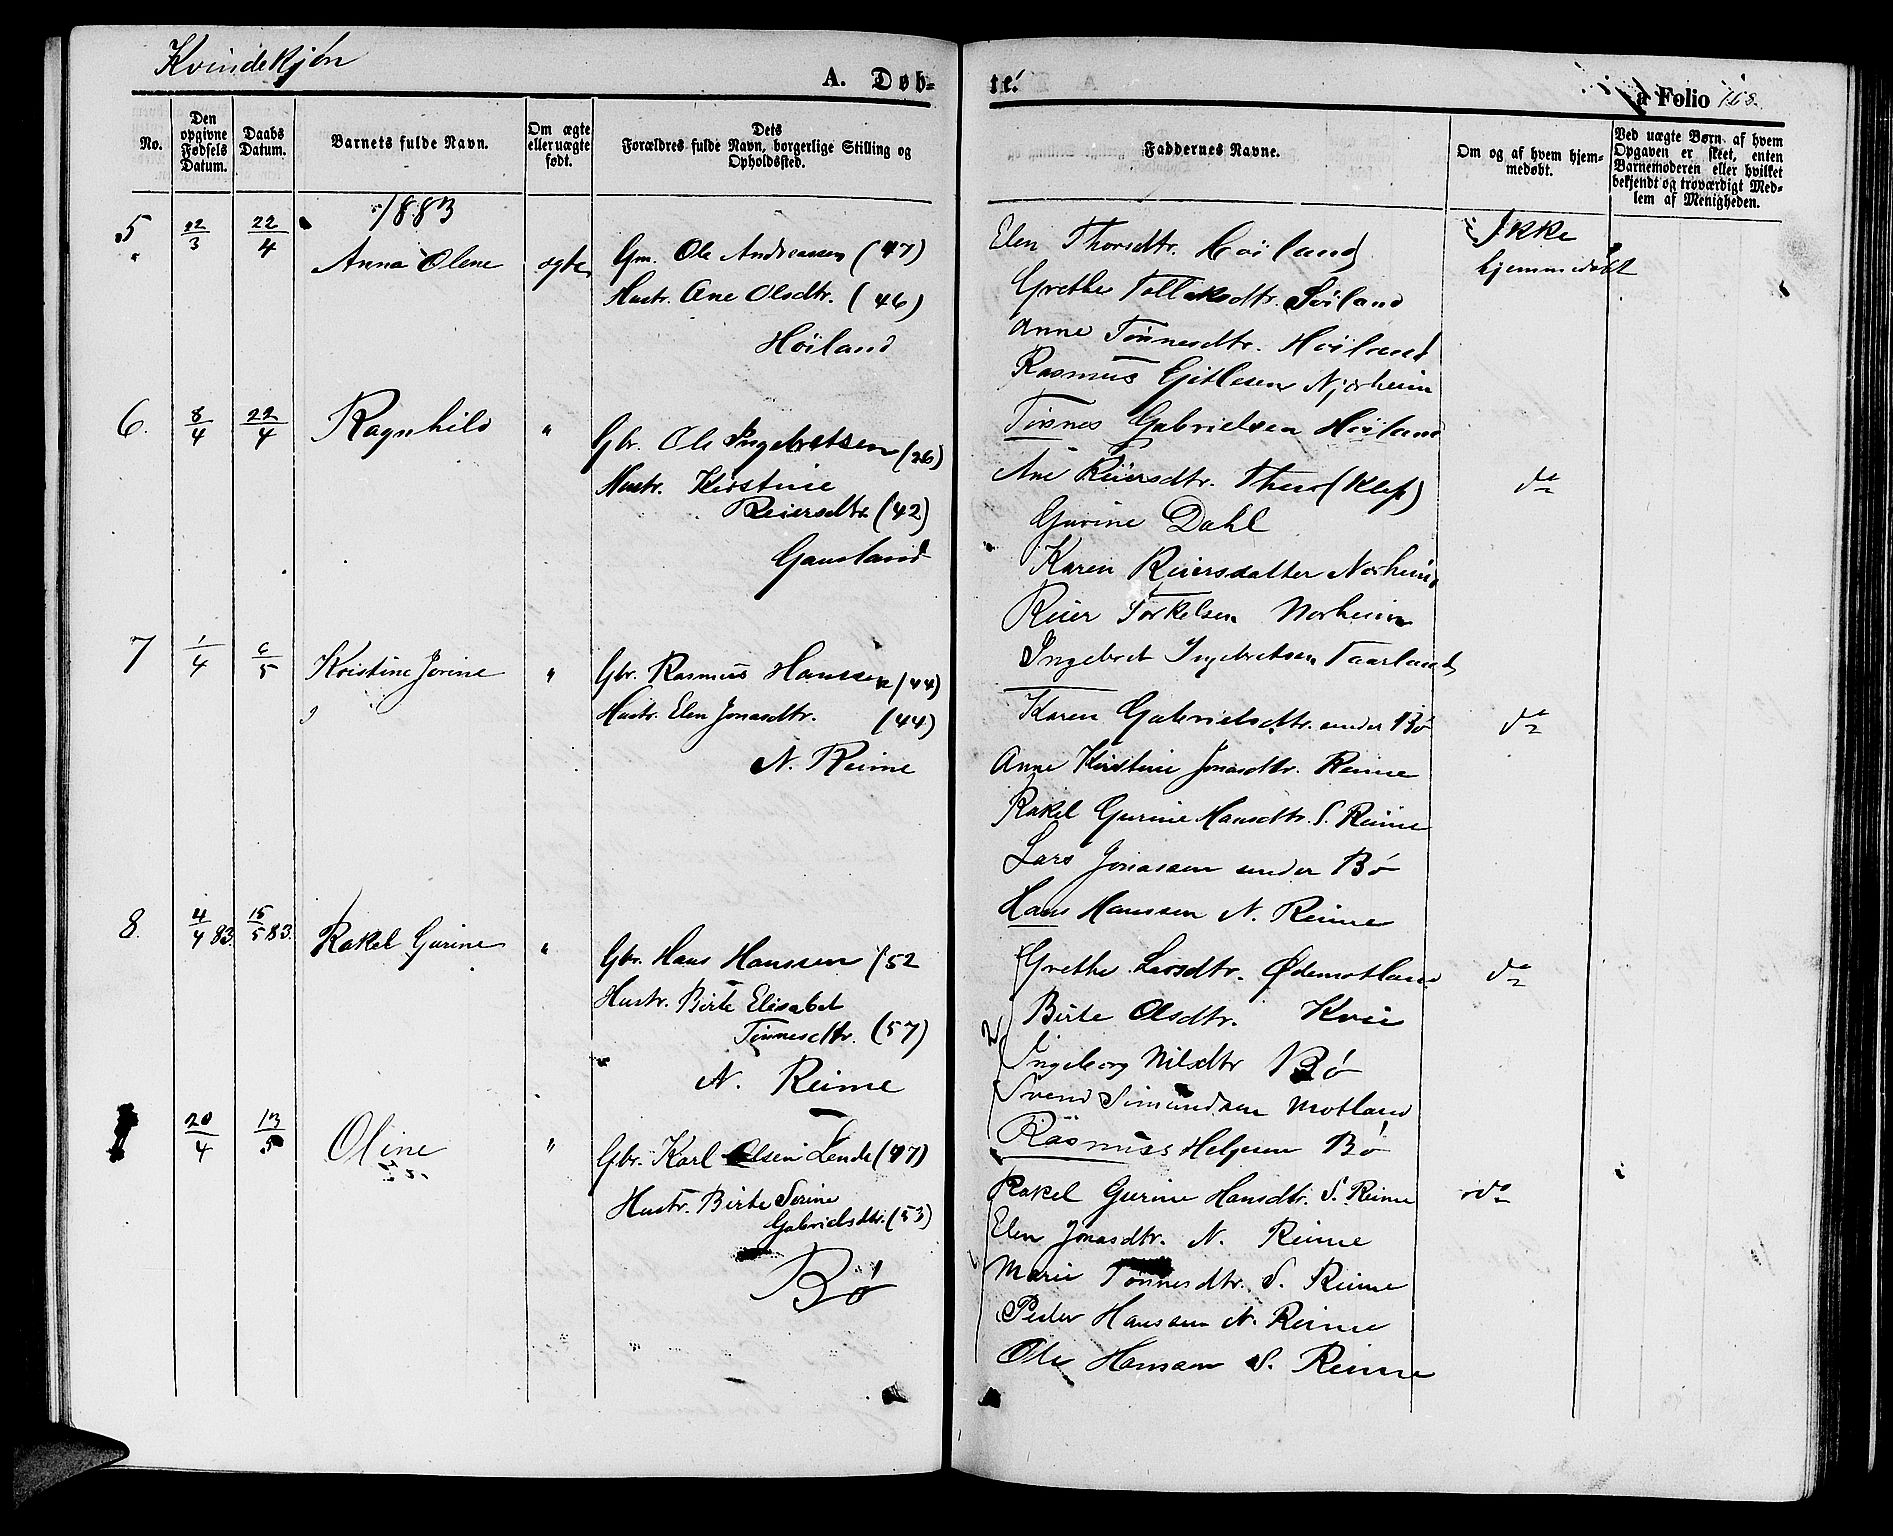 Kvindekjøn
A. Døb-
te.
a Folio 168.
No.
Den opgivne Fødsels Datum.
Daabs Datum.
Barnets fulde Navn.
Om ægte eller uægte født.
Dets Forældres fulde Navn, borgerlige Stilling og Opholdssted.
Faddernes Navne.
Om og af hvem hjem-
medøbt.
Ved uægte Børn, af hvem
Opgaven er skeet, enten
Barnemoderen eller hvilket
bekjendt og troværdigt Med-
lem af Menigheden.
1883
5 22/3 22/4 Anna Olene ægte
Gm. Ole Andreassen (47)
Hustr. Ane Olsdtr. (46)
Høiland
Elen Thorsdtr. Høiland
Grethe Tollaksdtr. Høiland
Anne Tønnesdtr. Høiland
Rasmus Gitlesen Njærheim
Tønnes Gabrielsen Høiland
Ikke
hjemmedøbt
6. 8/4 22/4 Ragnhild "
Gbr. Ole Ingebretsen (26)
Hustr. Kirstine
Reiersdtr. (42)
Gausland
Ane Reiersdtr. Thu (Klep)
Gurine Dahl
Karen Reiersdatter Norheim
Reier Torkelsen Norheim
Ingebret Ingebretsen Taarland
do
7 1/4 6/5 Kristine Jorine "
Gbr. Rasmus Hanssen (44)
Hustr. Elen Jonasdtr. (44)
N. Reime
Karen Gabrielsdtr. under Bø
Anne Kirstine Jonasdtr. Reime
Rakel Gurine Hansdtr. S. Reime
Lars Jonassen under Bø
Hans Hanssen N. Reime
do
8. 4/4 83. 15/5 83. Rakel Gurine "
Gbr. Hans Hanssen (52
Hustr. Birte Elisabet
Tønnesdtr. (57)
N. Reime
2
Grethe Larsdtr. Ødemotland
Birte Olsdtr. Kvie
Ingeborg Nilsdtr Bø
Svend Simundsen Motland
Rasmus Helgesen Bø
do
20/4 13/5 Oline "
Gbr. Karl Olsen Lende (47)
Hustr. Birte Serine
Gabrielsdtr. (53)
Bø
Rakel Gurine Hansdtr. S. Reime
Elen Jonasdtr. N. Reime
Marie Tønnesdtr. S. Reime
Peder Hanssen N. Reime
Ole Hansen S. Reime
do